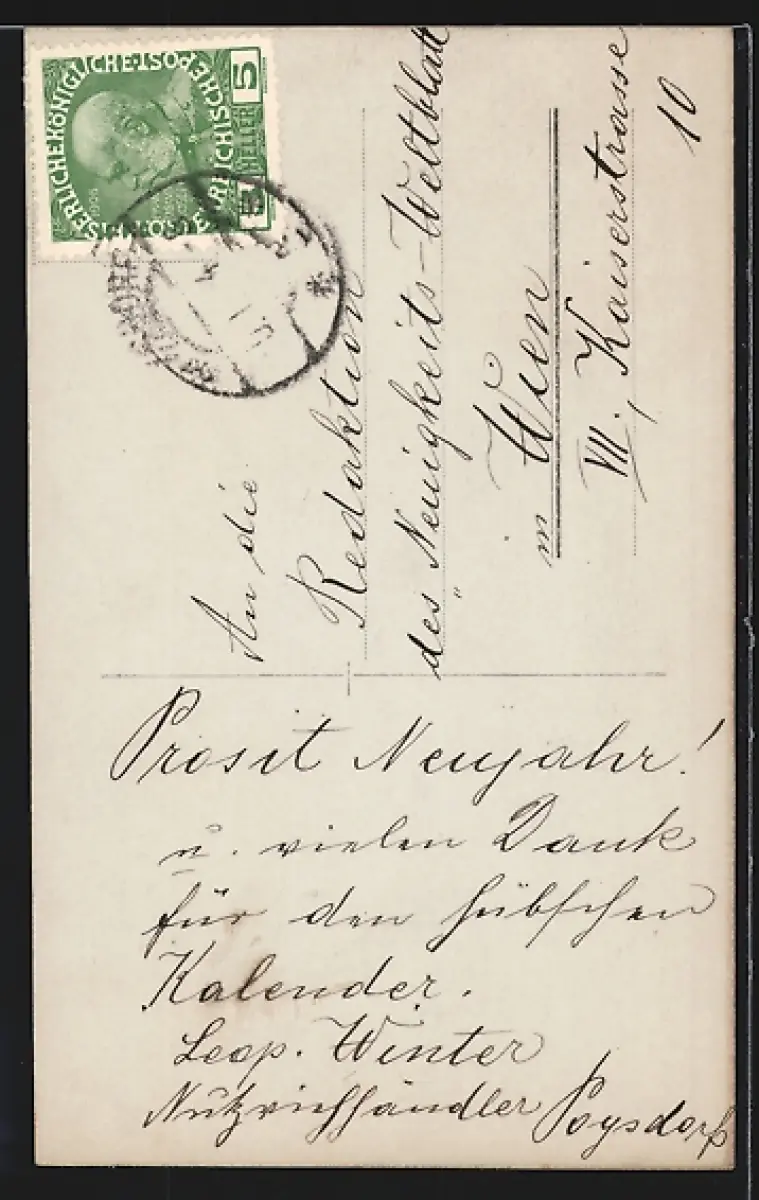 KAISERLICHE KÖNIGLICHE ÖSTERREICHISCHE POST
5
HELLER
1908
An die
Redaktion
des „Neuigkeits-Weltblatt
in Wien
VII., Kaiserstrasse
10
Prosit Neujahr!
u. vielen Dank
für den hübschen
Kalender.
Leop. Winter
Nutzviehhändler Poysdorf